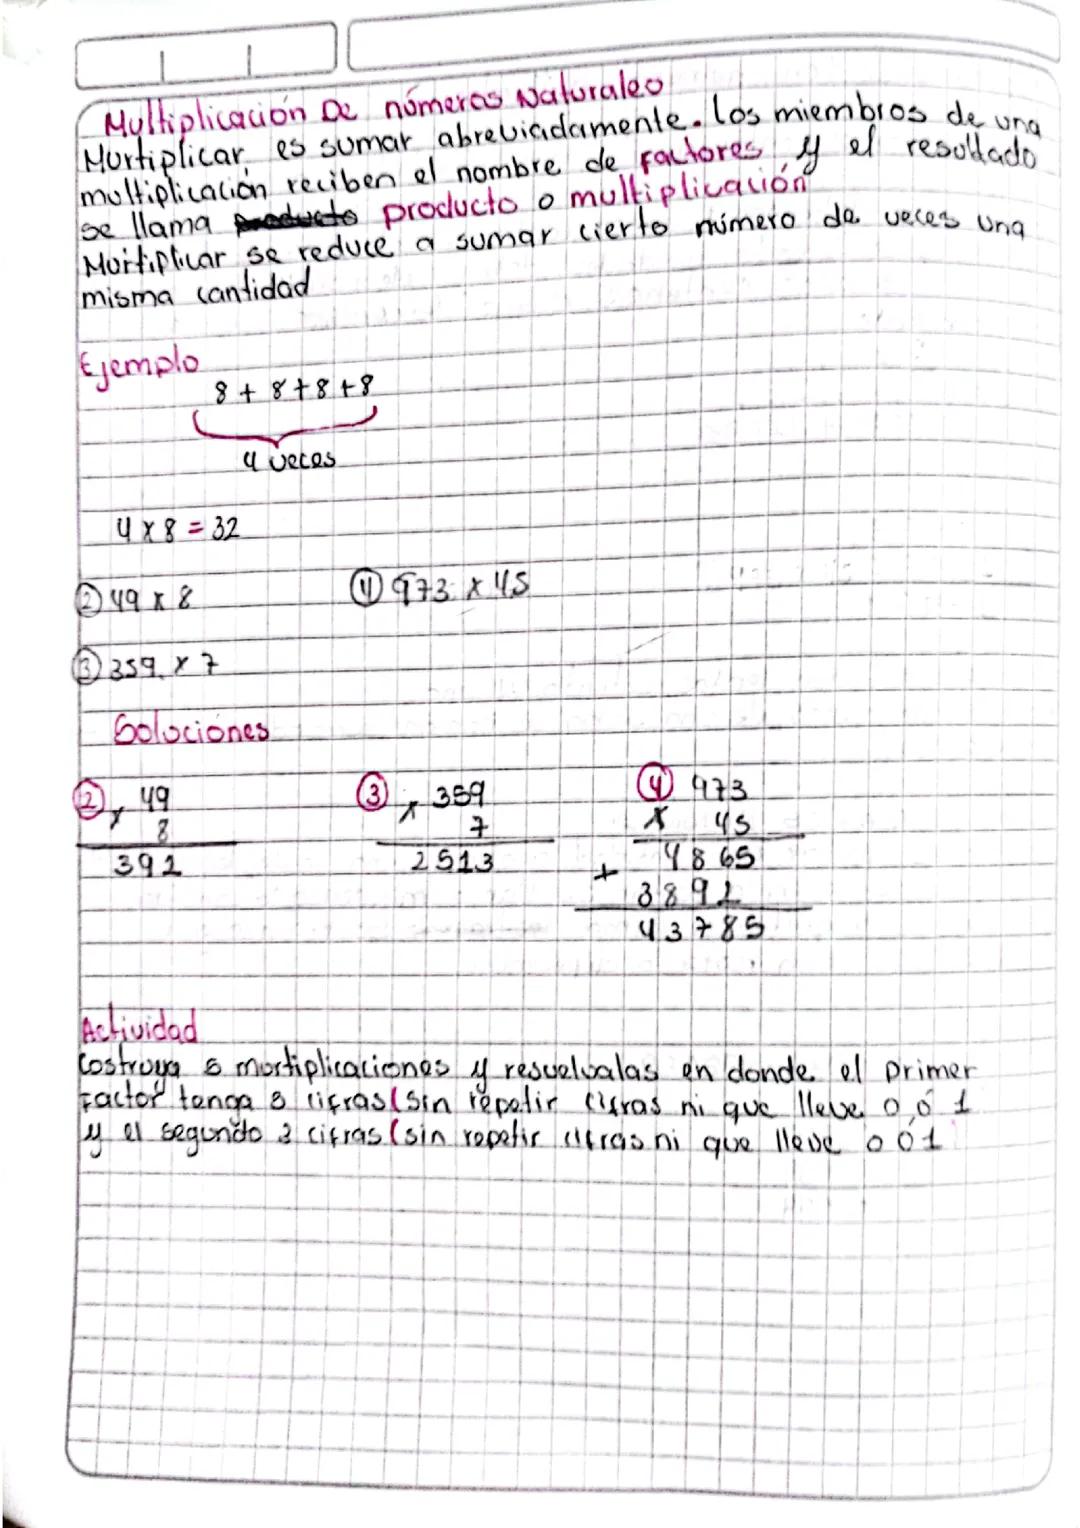 Multiplicación De números Naturales
Murtiplicar es sumar abreviadamente. los miembros de una
multiplicación reciben el nombre de factores y el resultado
se llama producto producto o multiplicación
Murtiplicar se reduce a sumar cierto número de veces una
misma cantidad
Ejemplo
8 + 8 + 8 + 8
4 veces
4 x 8 = 32
② 49 x 8 ④ 973 x 45
③ 359 x 7
Soluciones
② ③ ④
49 359 973
x 8 x 7 x 45
392 2513 4865
+ 3892
43785
Actividad
Costruya 5 mortiplicaciones y resuelvalas en donde el primer
factor tenga 3 cifras (sin repetir cifras ni que lleve 0, ó 1
y el segundo 2 cifras (sin repetir cifras ni que lleve 0 ó 1